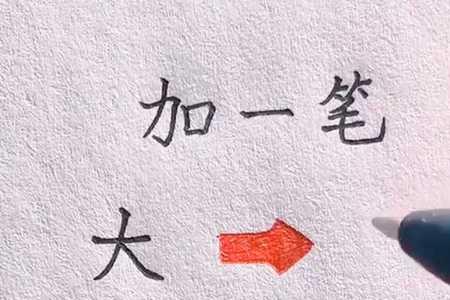 加一笔
大